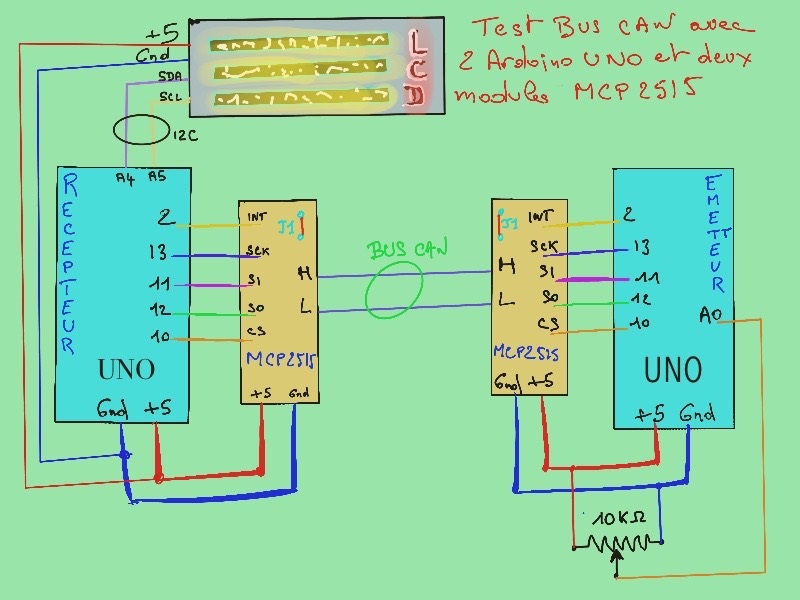 Test Bus CAN avec
2 Arduino UNO et deux
modules MCP2515
+5
Gnd
SDA
SCL
LCD
I2C
A4 A5
RECEPTEUR
2
13
11
12
10
UNO
Gnd +5
INT
J1
SCK
S1
SO
CS
H
L
MCP2515
+5 Gnd
BUS CAN
J1
INT
SCK
S1
SO
CS
H
L
MCP2515
Gnd +5
EMETTEUR
2
13
11
12
10
A0
UNO
+5 Gnd
10KΩ